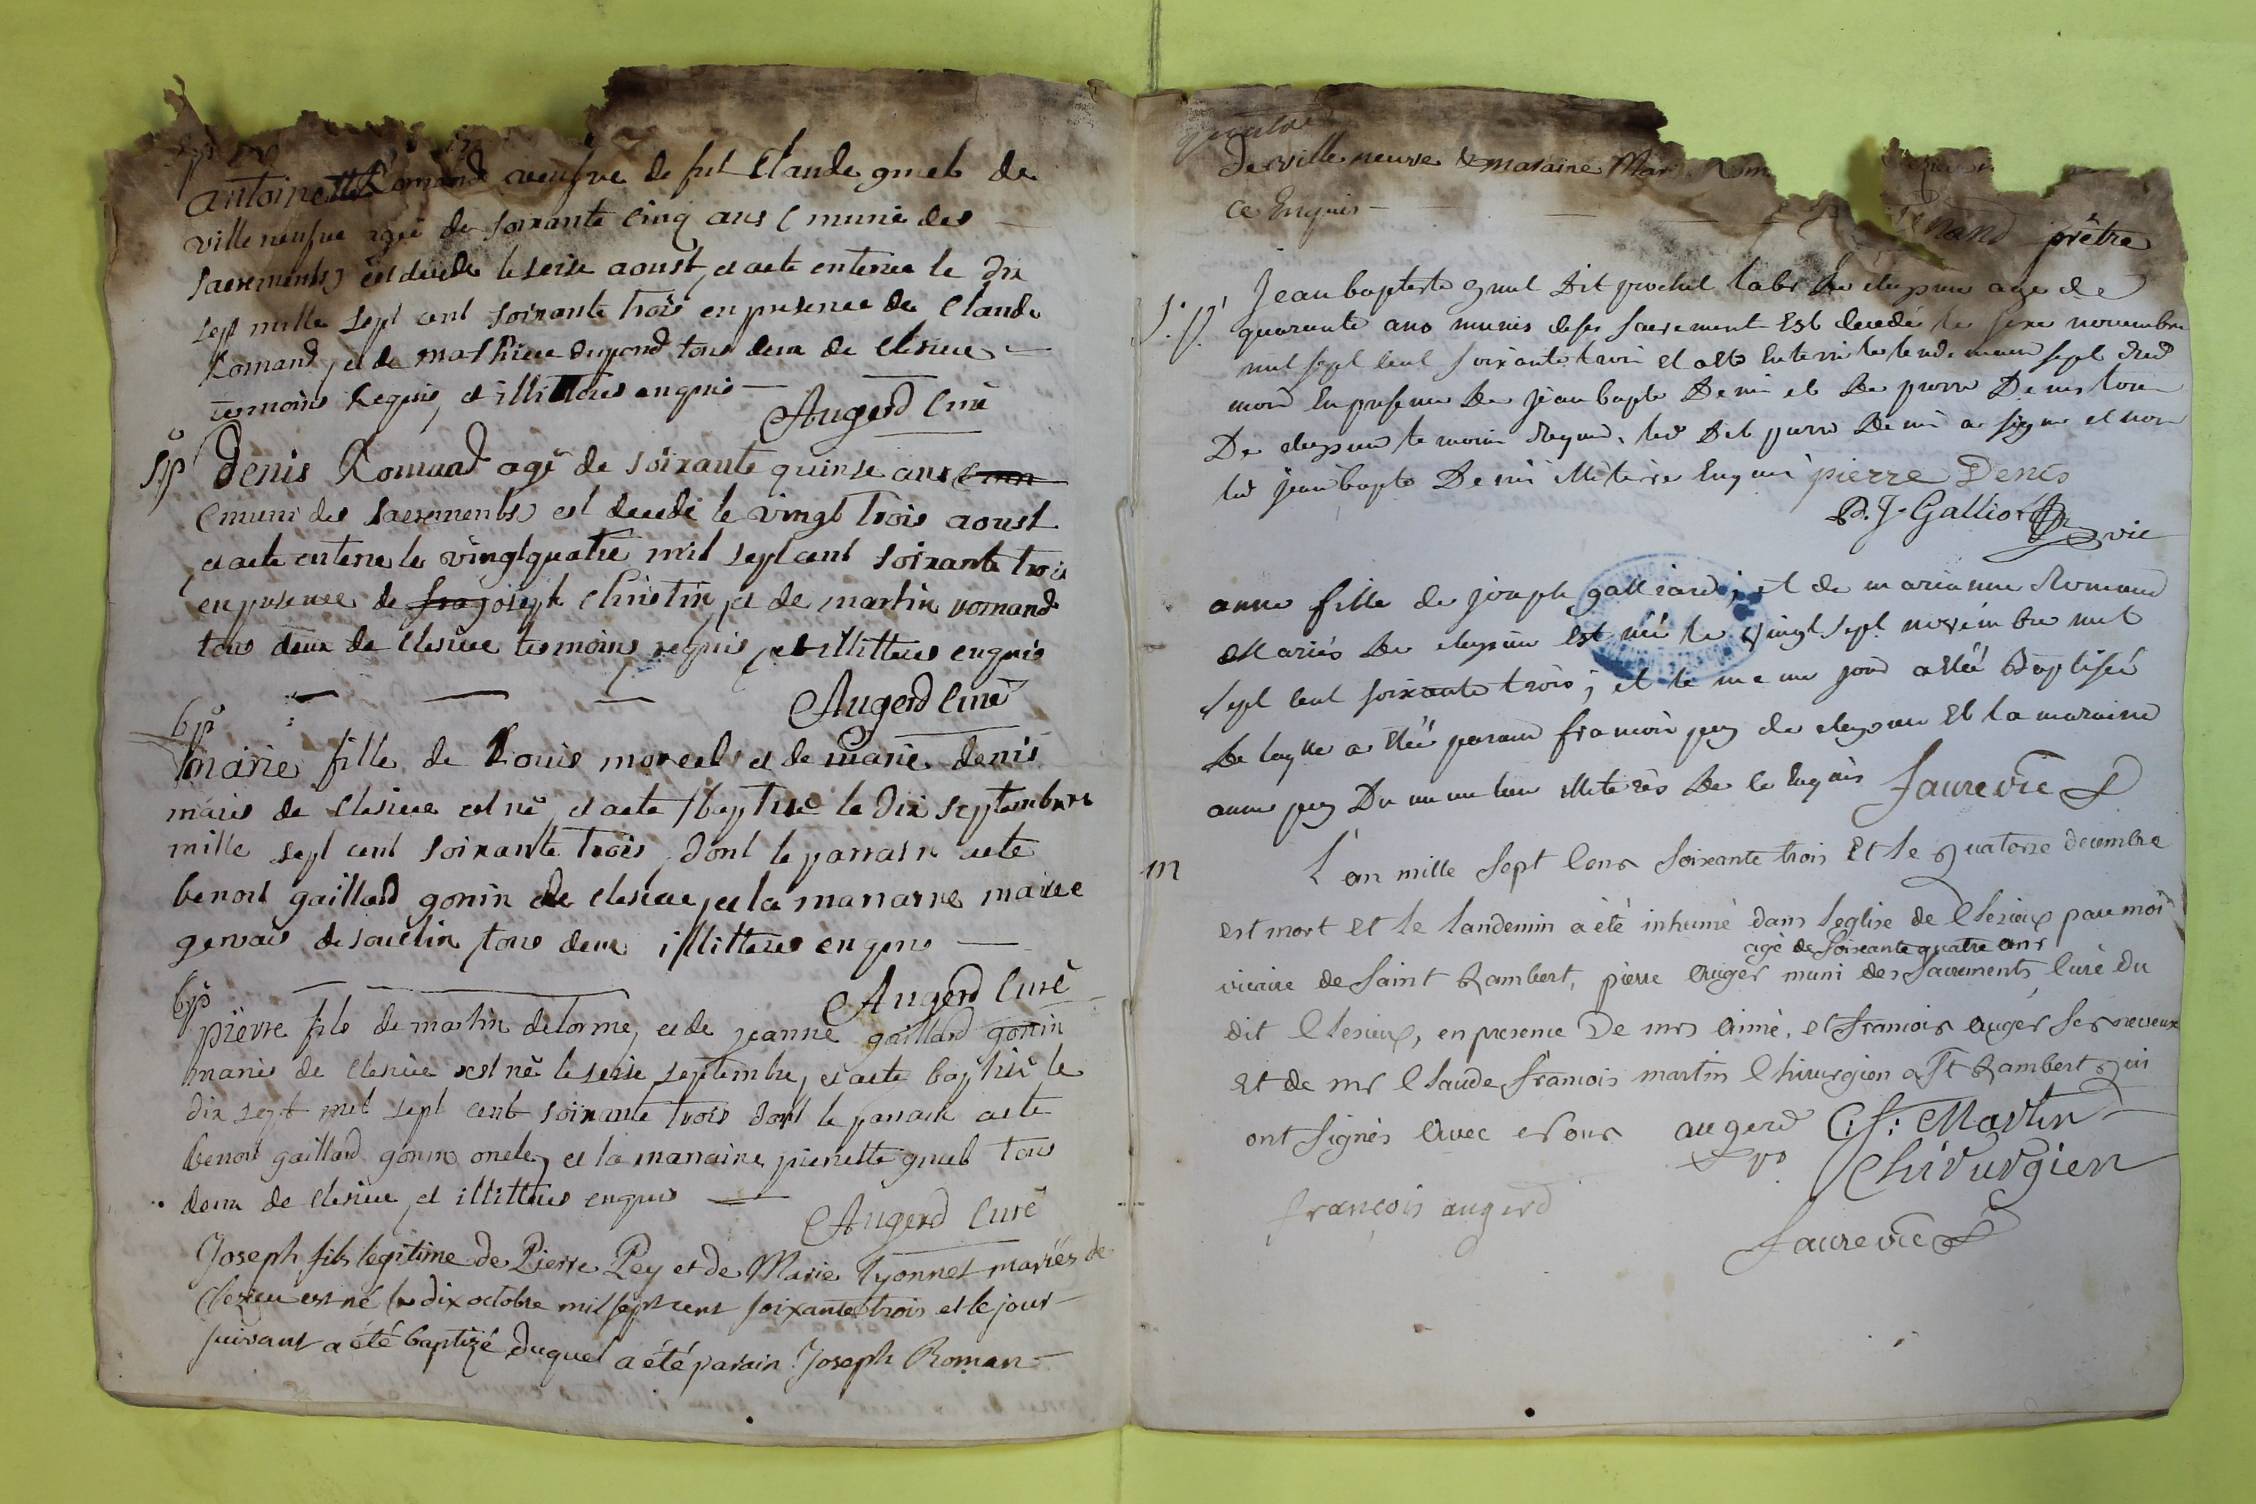 antoinette Romand veufve de fut Claude gruel de
ville neufve agée de soixante cinq ans (munie des
sacrements) est decede le seise aoust, et aete enterree le dix
sept mille sept cent soixante trois en presence de Claude
Romand, et de mathieu dupond tous deux de Clesieu
temoins requis, et illitteres enquis
Augerd Curé
Sp Denis Romand agé de soixante quinse ans
(muni des sacrements) est decede le vingt trois aoust
et aete enterre le vingtquatre mil sept cent soixante trois
en presence de joseph Christin, et de martin romand
tous deux de Clesieu temoins requis, et illitteres enquis
Augerd Curé
bp
marie fille de Louis morel et de marie denis
mariés de Clesieu est né et aete baptisé le dix septembre
mille sept cent soixante trois, dont le parrain aete
benoit gaillard gonin de Clesieu, et la marraine marie
gervais de souclin, tous deux illitteres enquis
Augerd Curé
bp
pierre fils de martin delorme, et de jeanne gaillard gonin
mariés de Clesieu est né le seise septembre, et aete baptisé le
dix sept mil sept cent soixante trois dont le parrain aete
benoit gaillard gonin oncle, et la marraine pierrette gruel tous
deux de Clesieu, et illitteres enquis
Augerd Curé
Joseph fils legitime de Pierre Pey et de Marie Lyonnet mariés de
Clesieu est né le dix octobre mil sept cent soixante trois et le jour
suivant a été baptizé duquel a été parain Joseph Roman
de ville neuve & maraine Mari
ce Enquis prêtre
S.p. Jean bapteste gruel Dit prochet De clesieu age de
quarante ans munis de ses sacrement Est decedé le seze novembre
mil sept cent soixante trois Et aété Enterré le lendemain sept dud
mois En presence De jean bapte Deni et De pierre Denis tous
De clesieu temoins Requis, led Dit pierre Deni a signe et non
led jean bapte Deni illiterés Enquis pierre Denis
P. J. Galliot vic
anne fille de joseph galliard; et de marianne Romand
Mariés De clesieu Est née le vingt sept novembre mil
sept cent soixante trois; et le meme jour a été Baptisée
De laquelle a été parain francois pey de clesieu Et la maraine
anne pey Du meme lieu illiterés De ce Enquis faure vic
m L'an mille sept Cens soixante trois Et le quatorze decembre
est mort et le landemin a été inhumé dans l'eglise de Clesieux par moi
agé de soixante quatre ans
vicaire de saint Rambert, pierre Auger muni des sacrements, Curé du
dit Clesieux, en presence De mrs Aimé, et francois Auger ses neveux
Et de mr Claude francois martin Chirurgien a st Rambert qui
ont signés Avec Nous augerd C: f: Martin
Chirurgien
françois augerd
faure vic